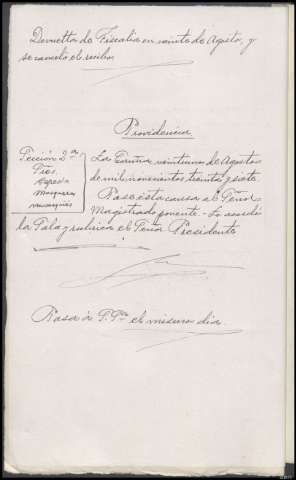 Devuelta de Fiscalía en veinte de Agosto, y
se canceló el recibo
Providencia
Sección 2ª
Tres.
Espejo
Marquez
La Coruña veintiuno de Agosto
de mil novecientos treinta y siete
Pase esta causa al Señor
Magistrado ponente - Lo acordó
la Sala y rubrica el Señor Presidente
Pasa a el mismo dia.